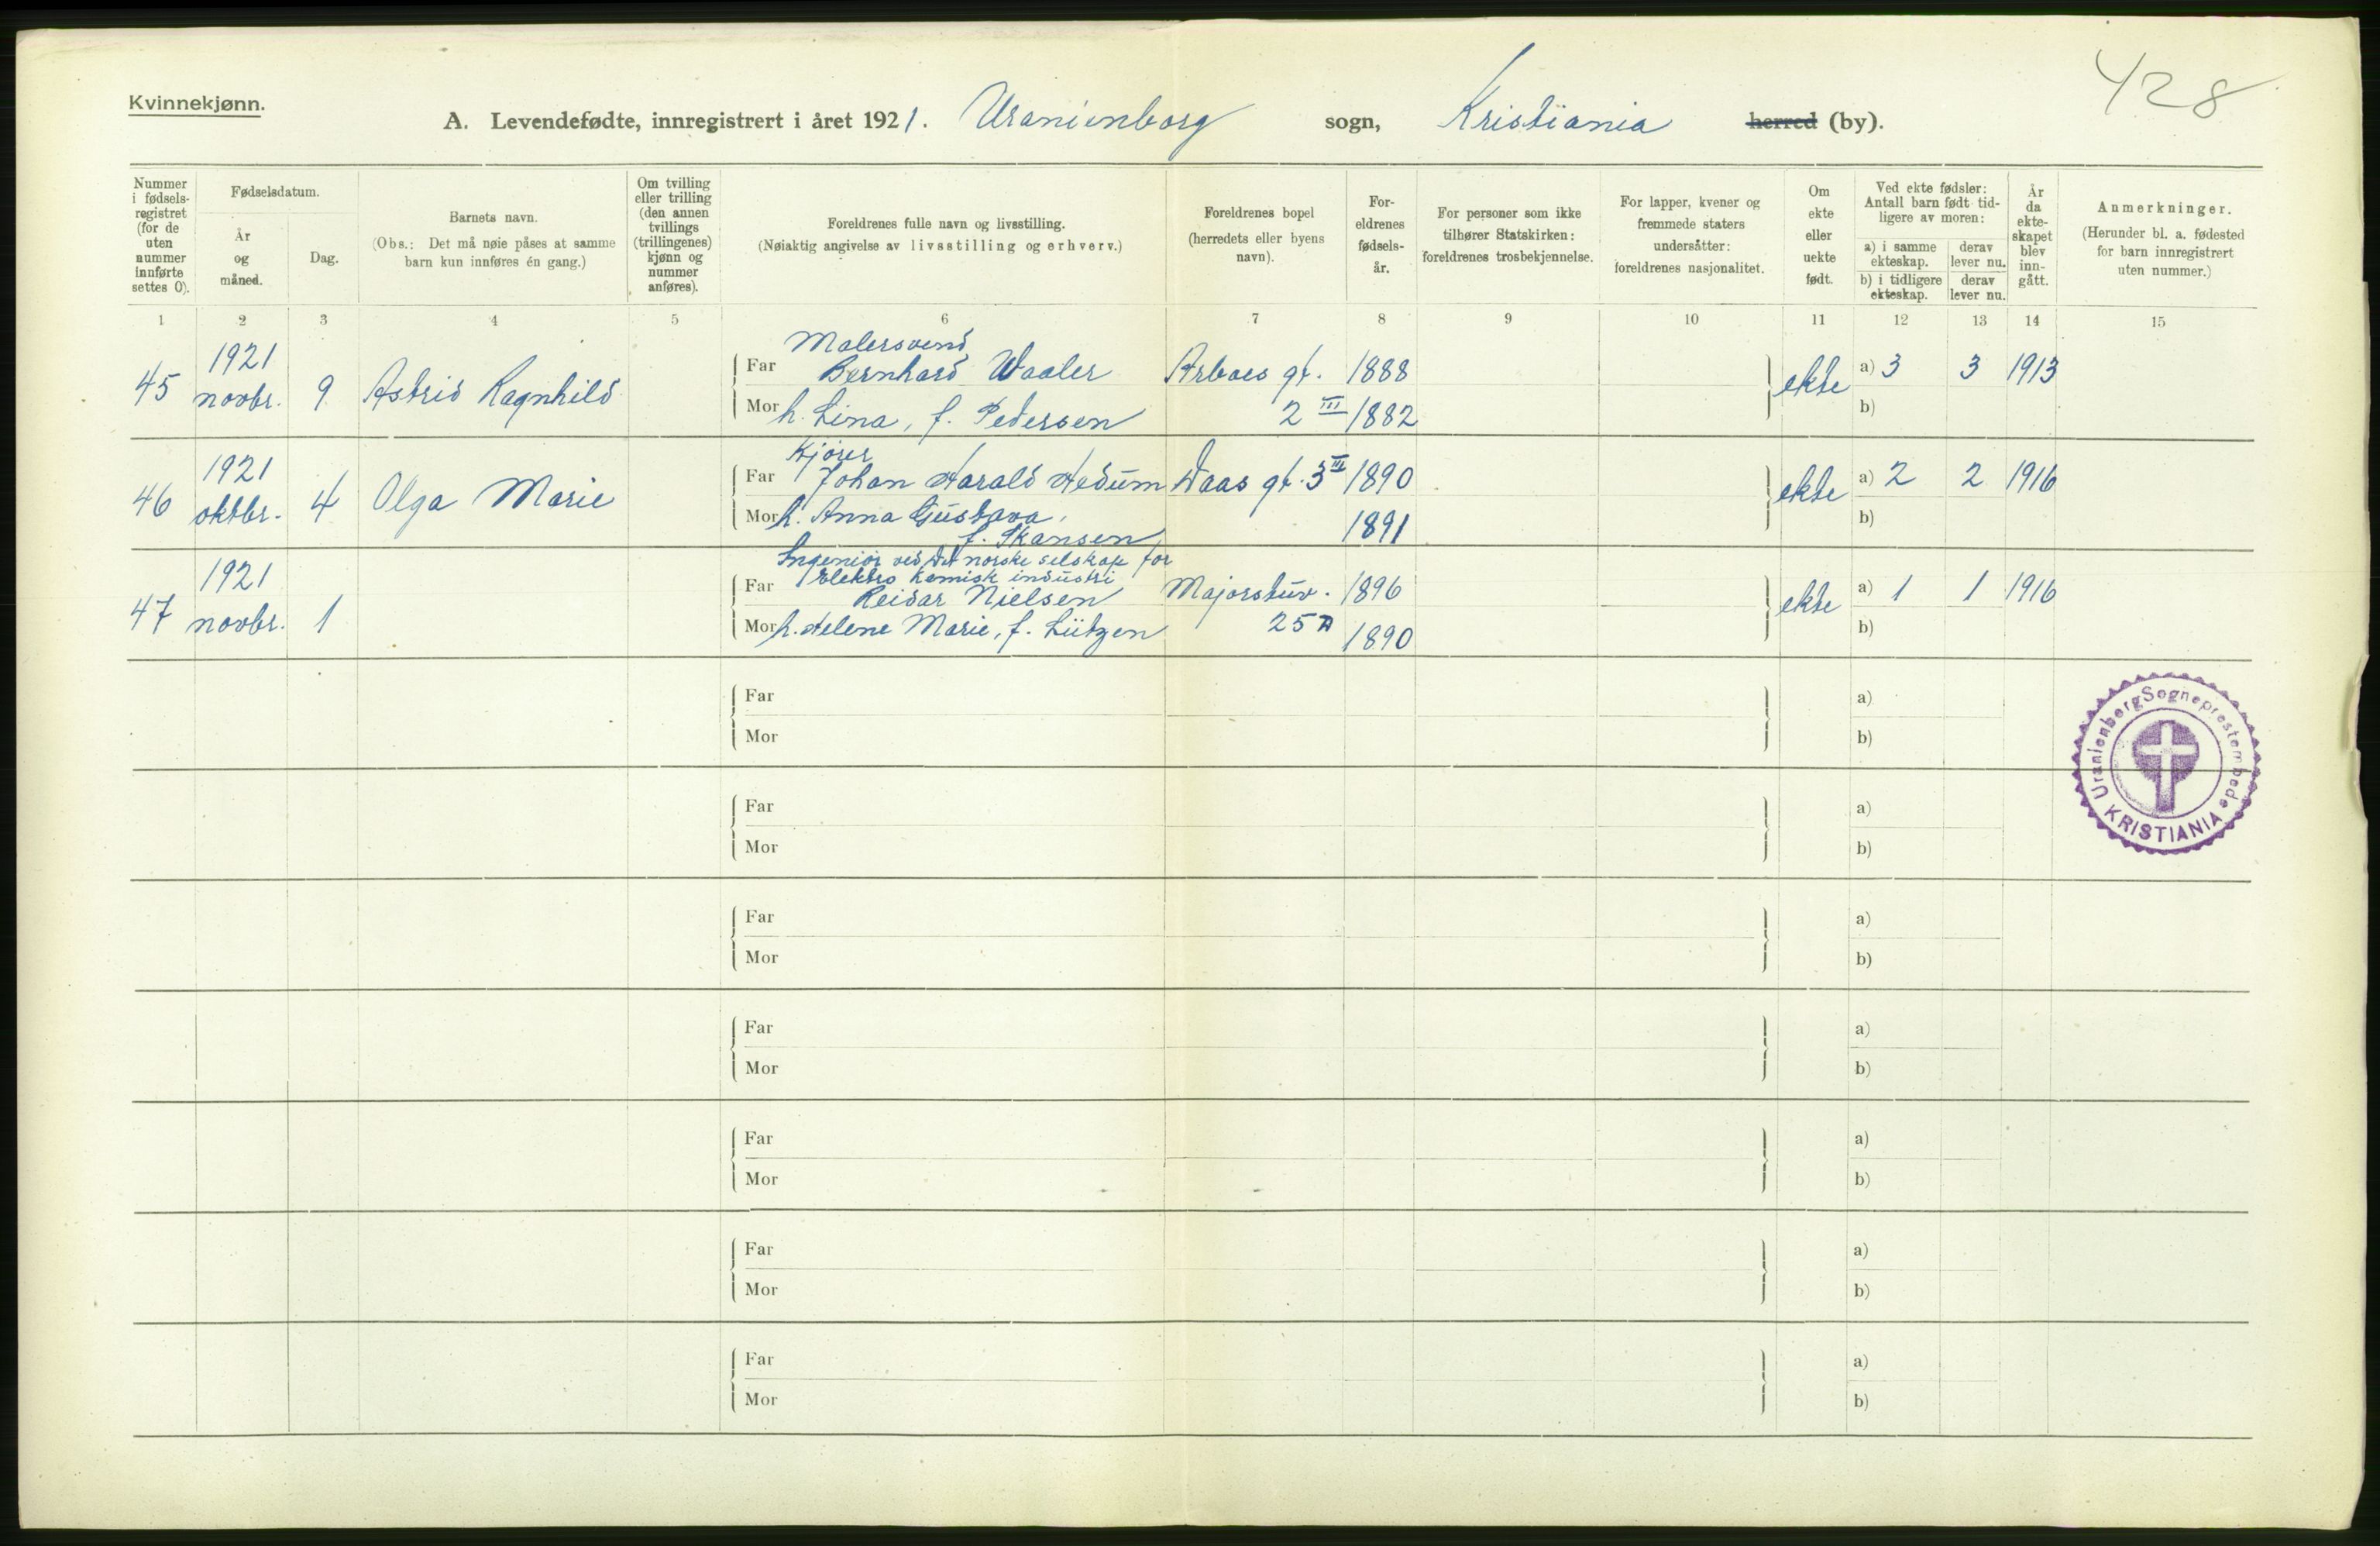 428
Kvinnekjønn.
A. Levendefødte, innregistrert i året 1921. Uranienborg sogn, Kristiania herred (by).
Nummer i fødselsregistret (for de uten nummer innførte settes 0).
Fødselsdatum.
År og måned.
Dag.
Barnets navn.
(Obs.: Det må nøie påses at samme barn kun innføres én gang.)
Om tvilling eller trilling (den annen tvillings (trillingenes) kjønn og nummer anføres).
Foreldrenes fulle navn og livsstilling.
(Nøiaktig angivelse av livsstilling og erhverv.)
Foreldrenes bopel (herredets eller byens navn).
Foreldrenes fødselsår.
For personer som ikke tilhører Statskirken: foreldrenes trosbekjennelse.
For lapper, kvener og fremmede staters undersåtter: foreldrenes nasjonalitet.
Om ekte eller uekte født.
Ved ekte fødsler: Antall barn født tidligere av moren:
a) i samme ekteskap. derav lever nu.
b) i tidligere ekteskap. derav lever nu.
År da ekteskapet blev inngått.
Anmerkninger.
(Herunder bl. a. fødested for barn innregistrert uten nummer.)
1 2 3 4 5 6 7 8 9 10 11 12 13 14 15
Malersvend
45 1921 novbr. 9 Astrid Ragnhild Far Bernhard Waaler gt. 1888 ekte a) 3 3 1913
Mor h. Lina, f. Pedersen 2 III 1882 b)
Kjører
46 1921 oktbr. 4 Olga Marie Far Johan Harald Hedum Daas gt. 3 III 1890 ekte a) 2 2 1916
Mor h. Anna Gustava, 1891 b)
f. Skansen
Ingeniør ved Det norske selskap for
Elektro kemisk industri
47 1921 novbr. 1 Far Reidar Nielsen Majorstuv. 1896 ekte a) 1 1 1916
Mor h. Helene Marie, f. Lützen 25 A 1890 b)
Far a)
Mor b)
Uranienborg Sogneprestembede
KRISTIANIA
Far a)
Mor b)
Far a)
Mor b)
Far a)
Mor b)
Far a)
Mor b)
Far a)
Mor b)
Far a)
Mor b)